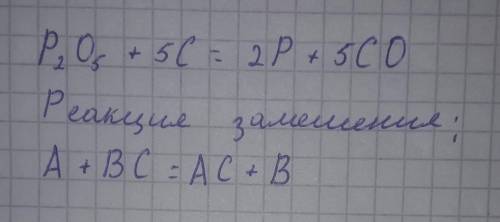 P₂O₅ + 5C = 2P + 5CO
Реакция замещения;
A + BC = AC + B